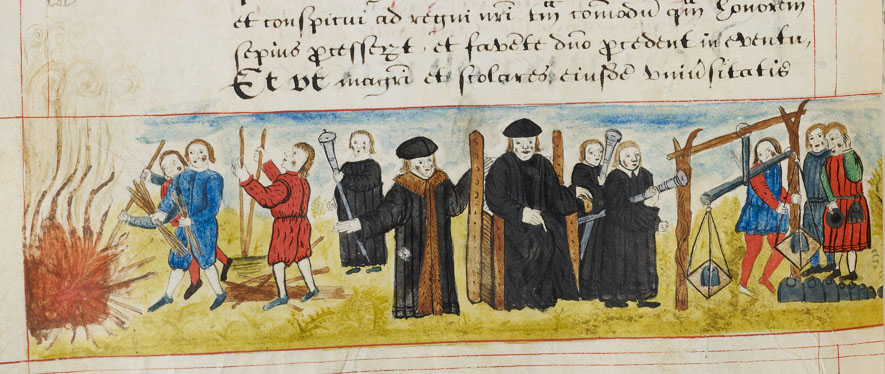 et conspicui ad regni nr̃i tm̃ com̃odũ qm̃ honorem
sepius p̃cesser̃t, et favẽte dño p̃cedent in eventu,
Et vt mag̃ri et scolares eiusdẽ vniũsitatis